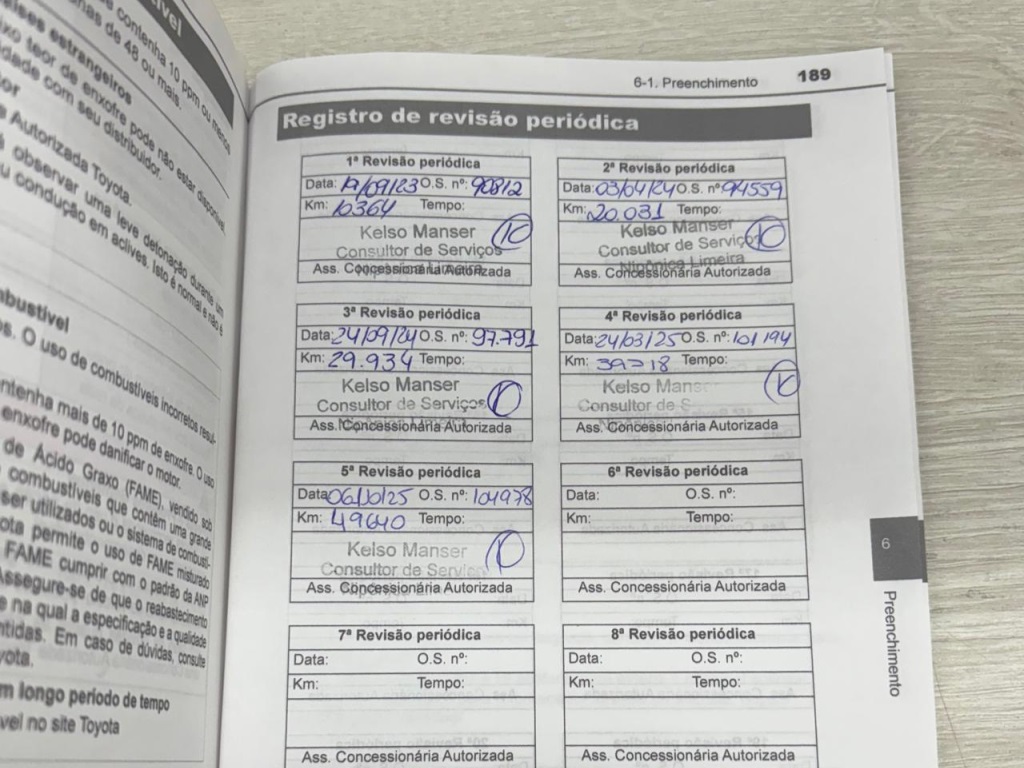 ível
contenha 10 ppm ou menos
de 48 ou mais.
aíses estrangeiros
teor de enxofre pode não estar disponível
com seu distribuidor.
Autorizada Toyota.
observar uma leve detonação durante
condução em aclives. Isto é normal e não é
mbustível
os. O uso de combustíveis incorretos
ntenha mais de 10 ppm de enxofre. O uso
enxofre pode danificar o motor.
de Ácido Graxo (FAME), vendido sob
combustíveis que contêm uma grande
ser utilizados ou o sistema de combustí-
ota permite o uso de FAME misturado
FAME cumprir com o padrão da ANP
Assegure-se de que o reabastecimento
e na qual a especificação e a qualidade
ntidas. Em caso de dúvidas, consulte
yota.
m longo período de tempo
vel no site Toyota
6-1. Preenchimento 189
Registro de revisão periódica
1ª Revisão periódica
Data: 19/09/23 O.S. nº: 90812
Km: 10364 Tempo:
Kelso Manser
Consultor de Serviços
Limeira
Ass. Concessionária Autorizada
2ª Revisão periódica
Data: 03/04/24 O.S. nº 94559
Km: 20.031 Tempo:
Kelso Manser
Consultor de Serviços
Nipônica Limeira
Ass. Concessionária Autorizada
3ª Revisão periódica
Data: 24/09/24 O.S. nº: 97.791
Km: 29.934 Tempo:
Kelso Manser
Consultor de Serviços
Limeira
Ass. Concessionária Autorizada
4ª Revisão periódica
Data: 24/03/25 O.S. nº: 101194
Km: 39718 Tempo:
Kelso Manser
Consultor de S
Ass. Concessionária Autorizada
5ª Revisão periódica
Data: 06/10/25 O.S. nº: 104978
Km: 49640 Tempo:
Kelso Manser
Consultor de Serviço
Ass. Concessionária Autorizada
6ª Revisão periódica
Data: O.S. nº:
Km: Tempo:
Ass. Concessionária Autorizada
7ª Revisão periódica
Data: O.S. nº:
Km: Tempo:
Ass. Concessionária Autorizada
8ª Revisão periódica
Data: O.S. nº:
Km: Tempo:
Ass. Concessionária Autorizada
6
Preenchimento